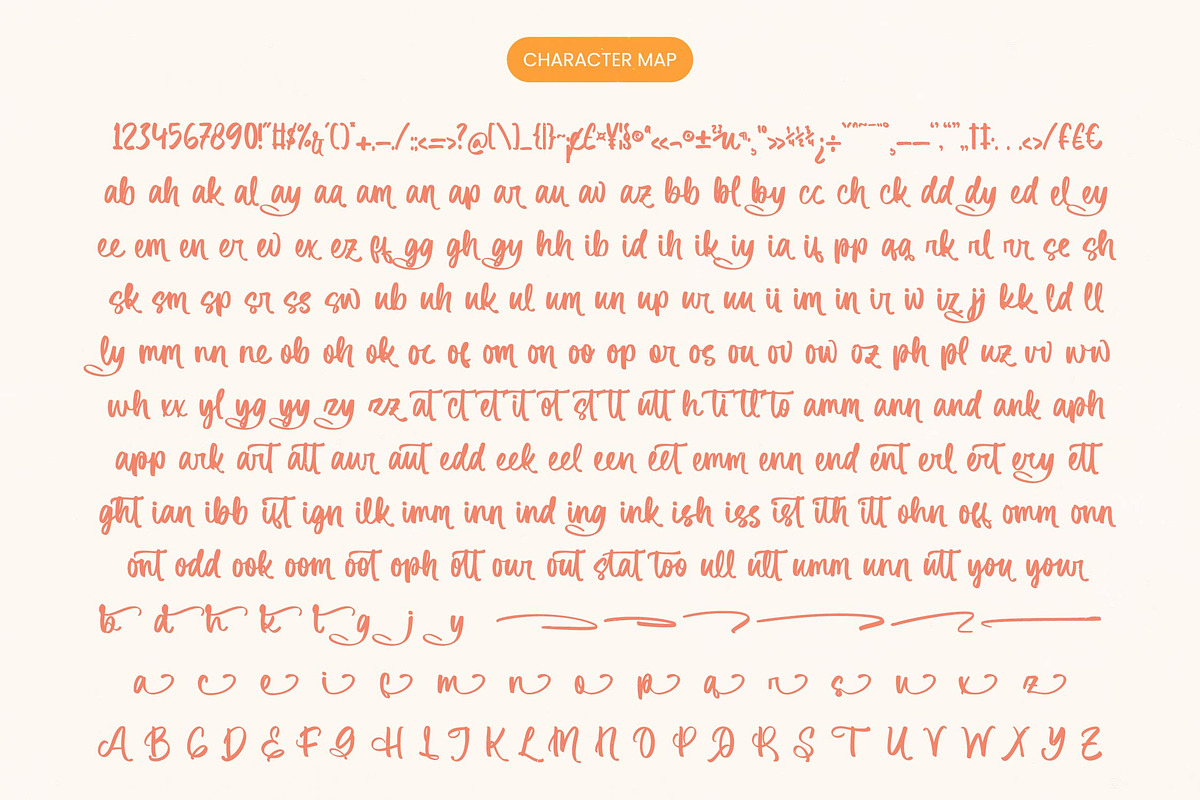 CHARACTER MAP
1234567890!"#$%&'()*+,-./:;<=>?@[\]_{|}~¡¢£¤¥¦§©ª«¬®±²³µ¶·¸¹º»¼½¾¿÷ˆ˜¨¯°¸–—‘’‚“”„†‡•…‹›/₣₤€
ab ah ak al ay aa am an ap ar au av az bb bl by cc ch ck dd dy ed el ey
ee em en er ev ex ez ff gg gh gy hh ib id ih ik iy ia if pp qq rk rl rr se sh
sk sm sp sr ss sw ub uh uk ul um un up ur uu ii im in ir iv iz jj kk ld ll
ly mm nn ne ob oh ok oc of om on oo op or os ou ov ow oz ph pl uz vv ww
wh xx yl yg yy zy zz at ct et it ot st tt utt h ti tl to amm ann and ank aph
app ark art att aur aut edd eek eel een eet emm enn end ent erl ert ery ett
ght ian ibb ift ign ilk imm inn ind ing ink ish iss ist ith itt ohn off omm onn
ont odd ook oom oot oph ott our out stat too ull ult umm unn utt you your
b d h k t g j y
a c e i f m n o p q r s u x z
A B C D E F G H I J K L M N O P Q R S T U V W X Y Z